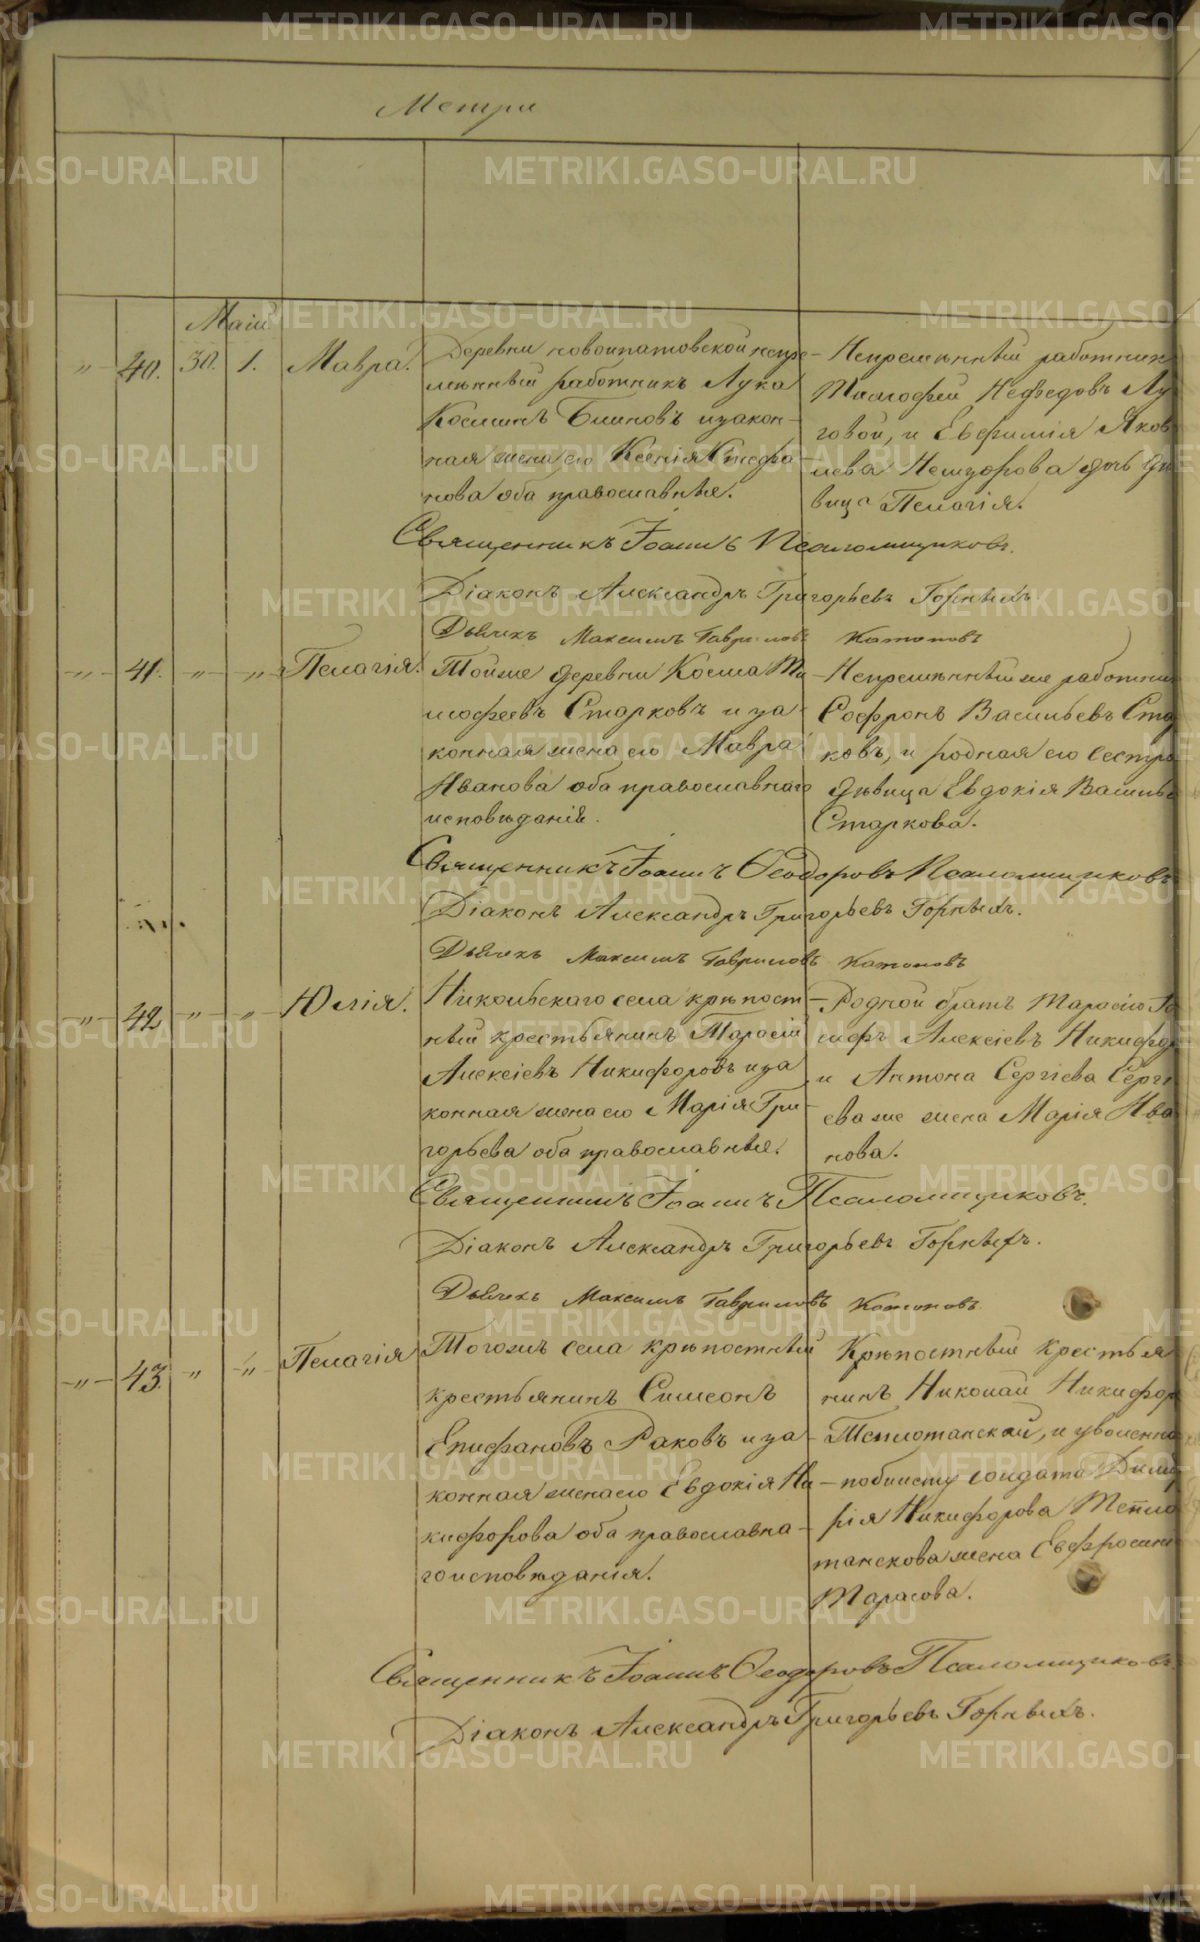 Метри
Маiй
" 40. 30. 1. Мавра.
Деревни новоипатовской непре-
мѣнный работникъ Лука
Косминъ Блиновъ и закон-
ная жена его Ксенiя Стефа-
нова оба православные.
Непремѣнный работник
Тимофей Нефедовъ Лу
говой, и Евфимiя Яков
лева дочь дѣ
вица Пелагiя.
Священникъ Iоаннъ Псаломщиковъ.
Дiаконъ Александръ Григорьевъ Горныхъ
Дьячекъ Максимъ Гавриловъ Катаповъ
" 41. " " Пелагiя.
Тойже деревни Косма Ти-
мофеевъ Старковъ и за-
конная жена его Мавра
Иванова оба православнаго
исповѣданiя.
Непремѣнный же работни
Софронъ Васильевъ Ста
ковъ, и родная его сестра
дѣвица Евдокiя Василье
Старкова.
Священникъ Iоаннъ Ѳеодоровъ Псаломщиковъ
Дiаконъ Александръ Григорьевъ Горныхъ.
Дьячекъ Максимъ Гавриловъ Катаповъ
" 42 " " Юлiя.
Никольскаго села крѣпост-
ный крестьянинъ Тарасiй
Алексiевъ Никифоровъ и за
конная жена его Марiя Гри-
горьева оба православные.
Родной братъ Тарасiю Iо
сифъ Алексiевъ Никифор
и Антона Сергiева Серги
ева же жена Марiя Ива
нова.
Священникъ Iоаннъ Псаломщиковъ.
Дiаконъ Александръ Григорьевъ Горныхъ.
Дьячекъ Максимъ Гавриловъ Катаповъ
" 43. " " Пелагiя
Тогожъ села крѣпостный
крестьянинъ Симеонъ
Епифановъ Раковъ и за-
конная жена его Евдокiя Ни-
кифорова оба православна-
го исповѣданiя.
Крѣпостный крестья
нинъ Николай Никифор
и уволенна
по билету солдата Дими
рiя Никифорова
жена Евфросинi
Тарасова.
Священникъ Iоаннъ Ѳеодоровъ Псаломщиковъ
Дiаконъ Александръ Григорьевъ Горныхъ.
METRIKI.GASO-URAL.RU